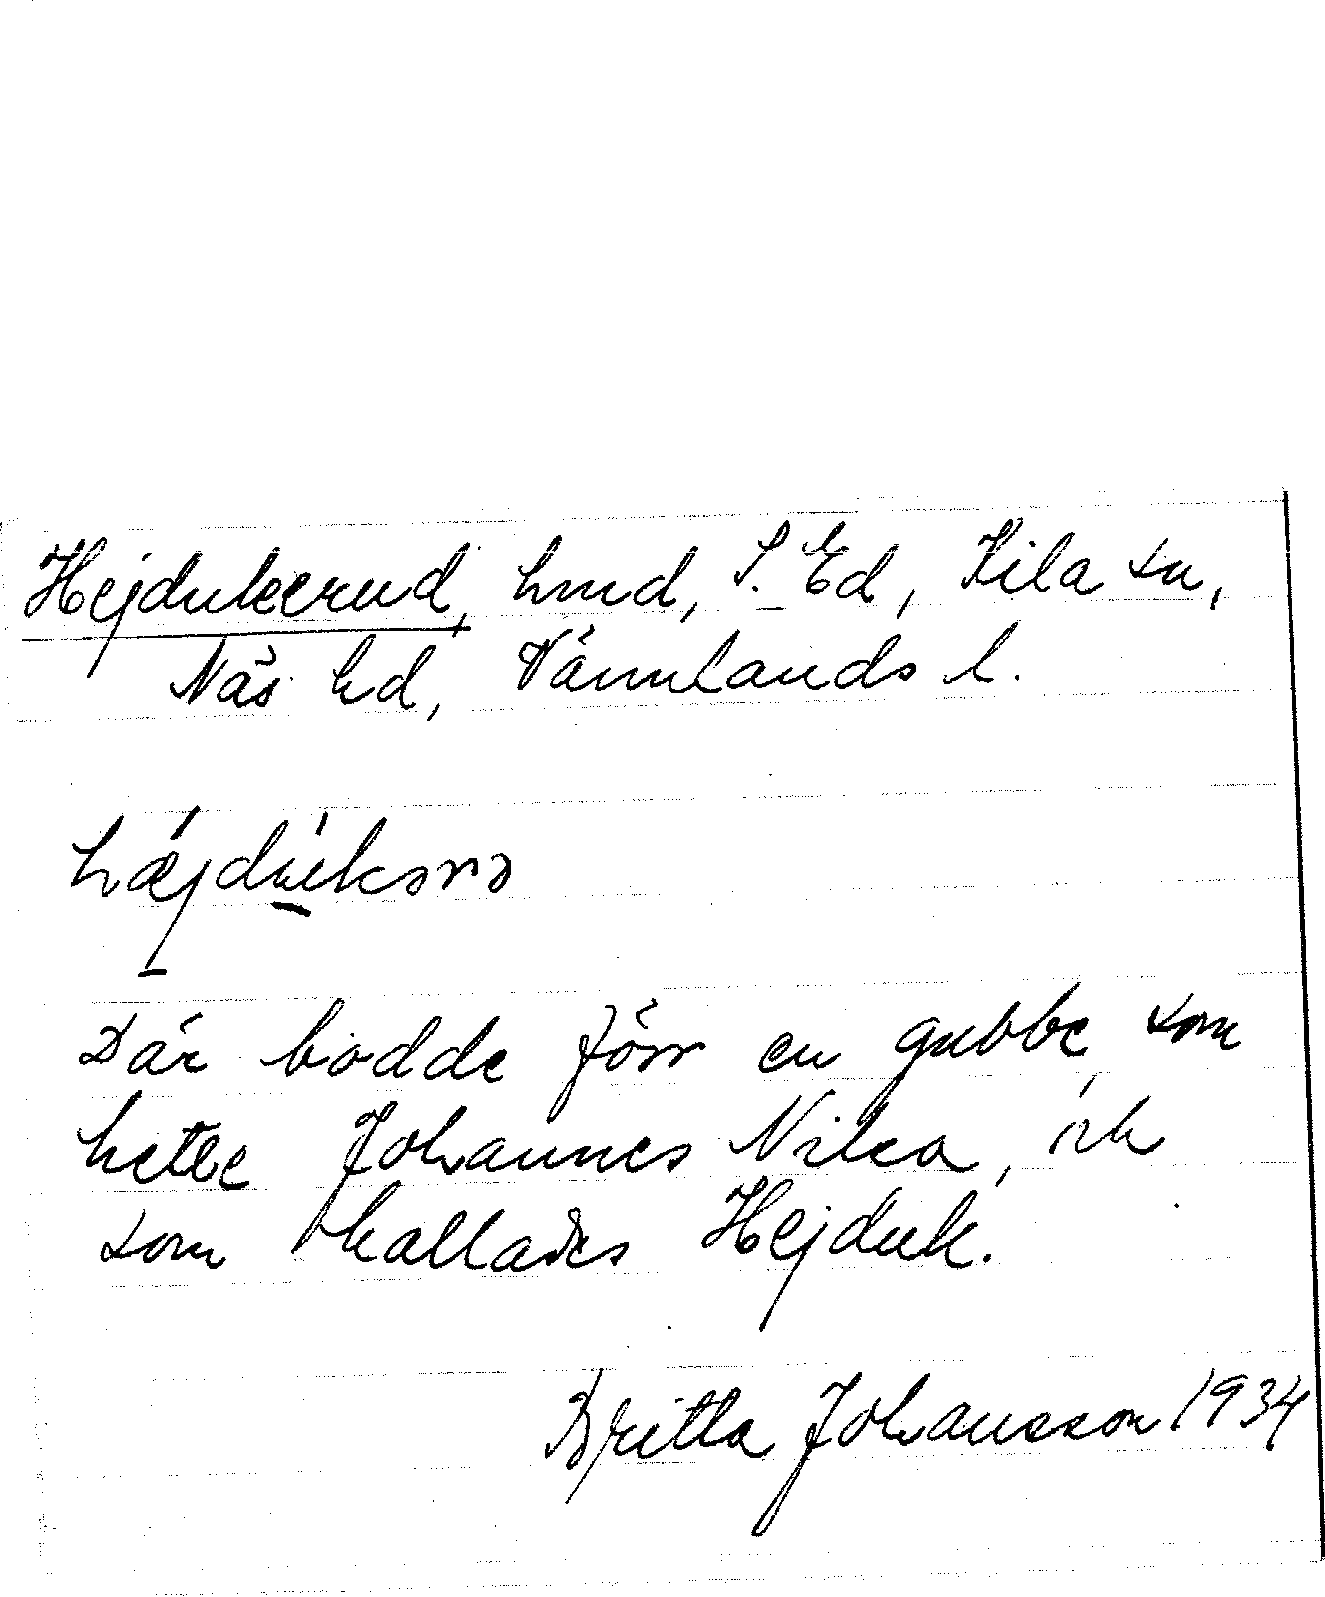 Hejdukerud, hmd, S. Ed, Kila sn,
Näs hd, Värmlands l.
hæjdukərə
Där bodde förr en gubbe, som
hette Johannes Nilsa, ok
som kallades Hejduk.
Britta Johansson 1934